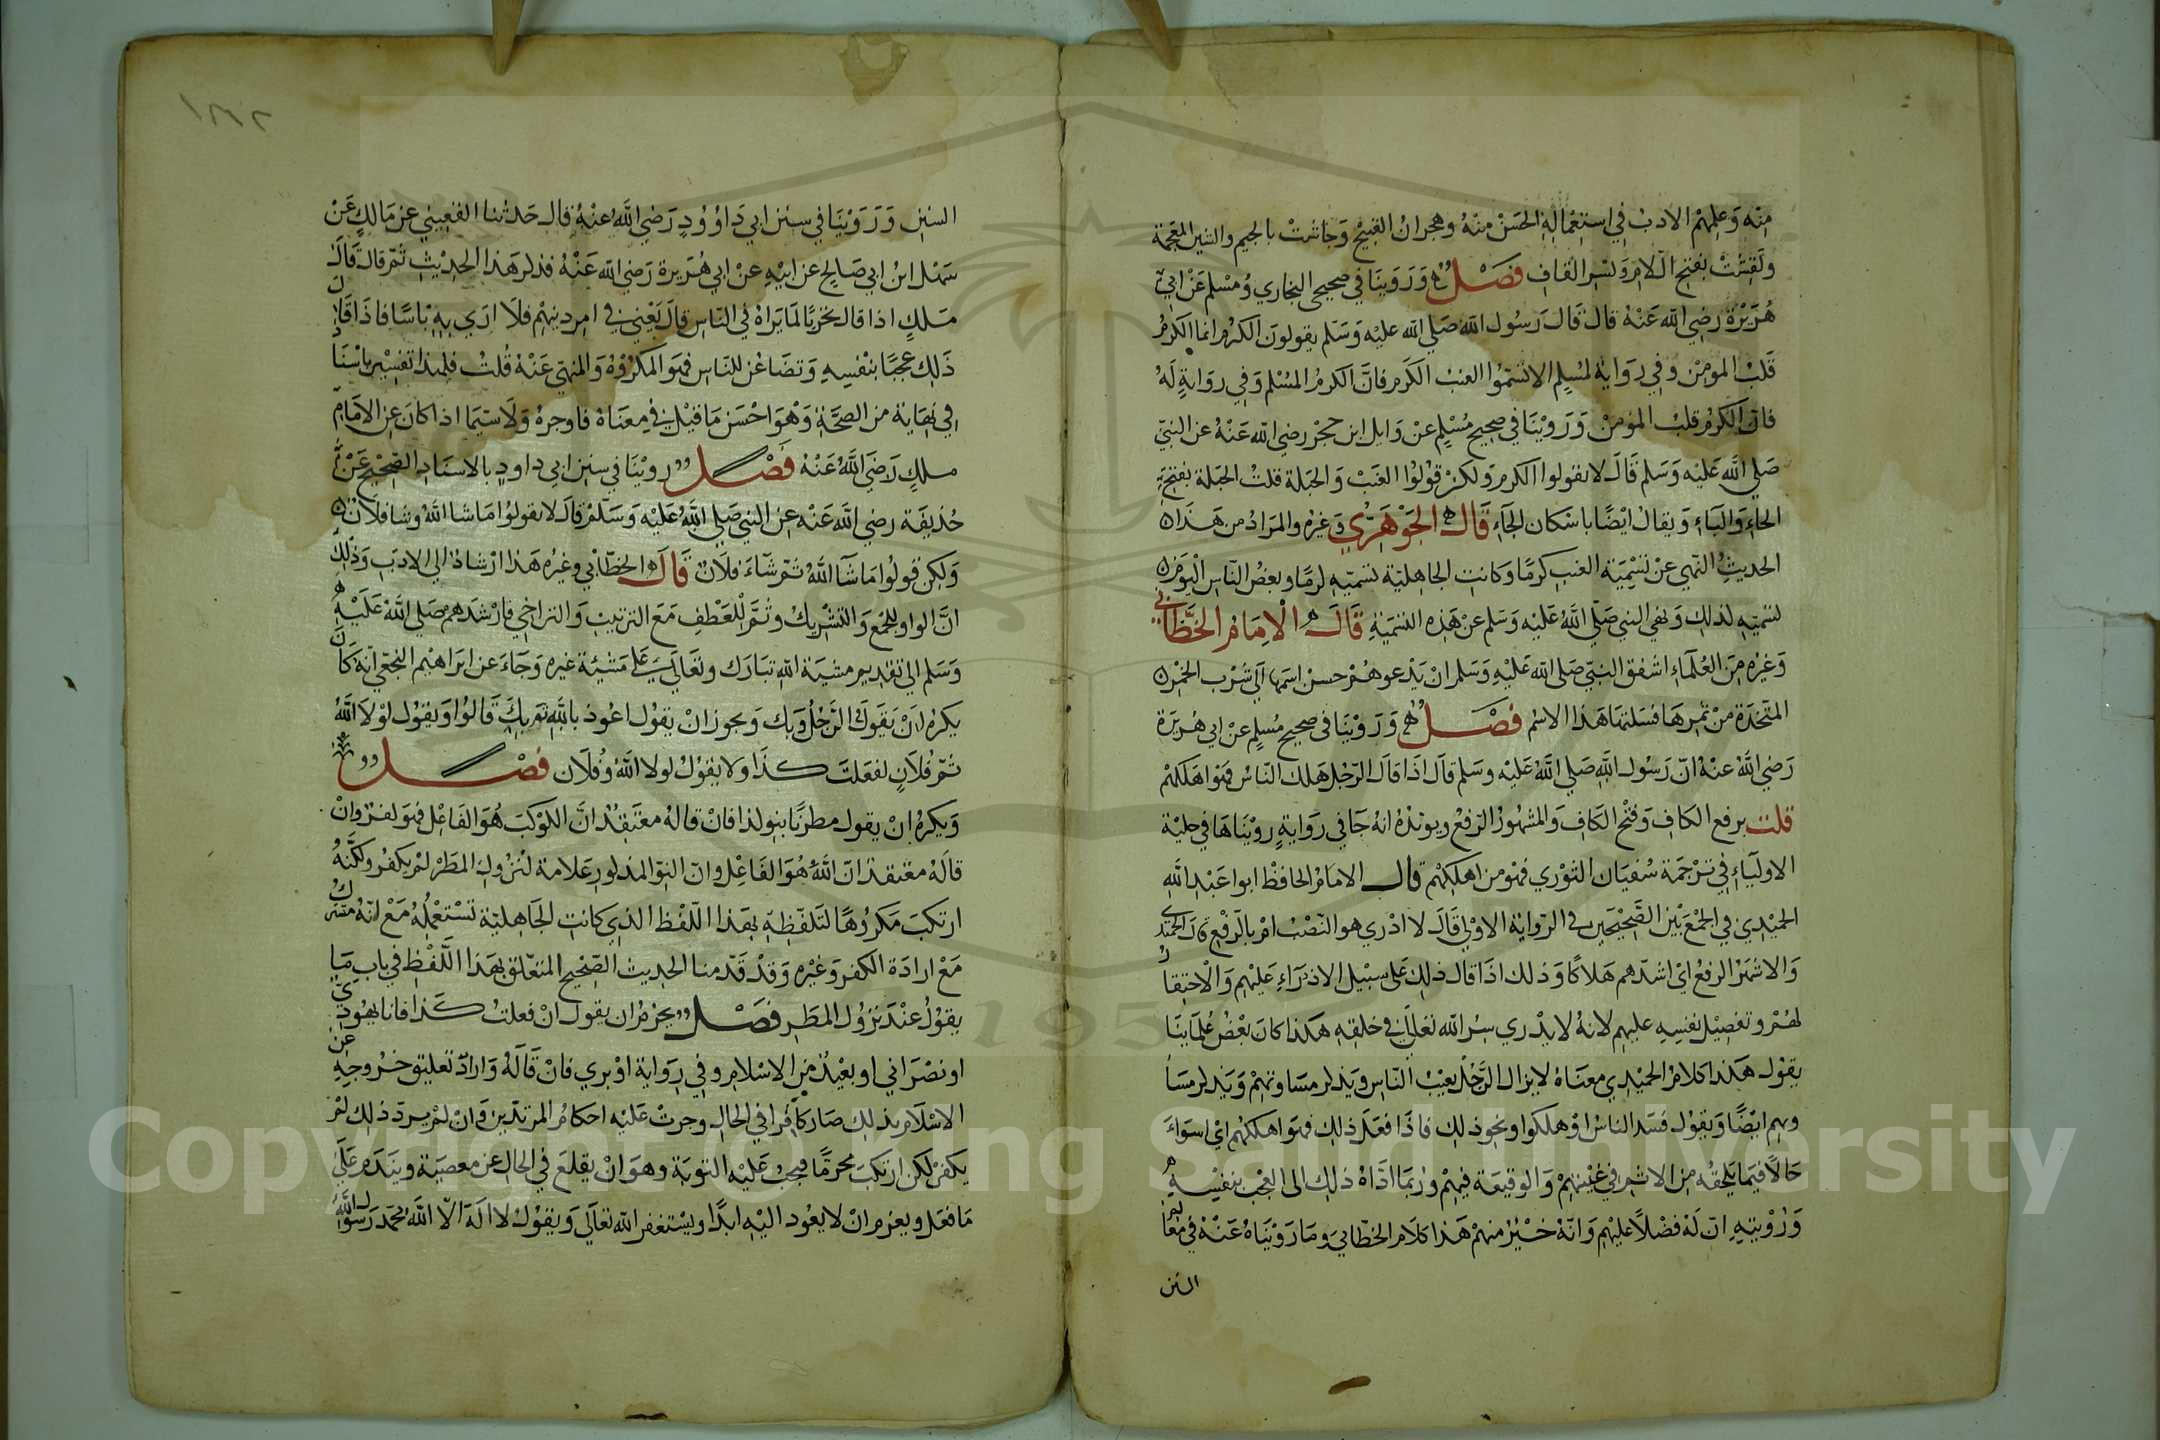 منه وعلمهم الادب في استعماله الحسن منه وهجران القبيح وجاشت بالجيم والشين المعجمة
ولقست بفتح اللام وكسر القاف فصل وروينا في صحيحي البخاري ومسلم عن ابي
هريرة رضي الله عنه قال قال رسول الله صلى الله عليه وسلم يقولون الكرم انما الكرم
قلب المومن وفي رواية لمسلم لا تسموا العنب الكرم فان الكرم المسلم وفي رواية له
فان الكرم قلب المومن وروينا في صحيح مسلم عن وايل ابن حجر رضي الله عنه عن النبي
صلى الله عليه وسلم قال لا يقولوا الكرم ولكن قولوا العنب والحبلة قلت الحبلة بفتح
الحاء والباء ويقال ايضا باسكان الباء قال الجوهري وغيره والمراد من هذا
الحديث النهي عن تسمية العنب كرما وكانت الجاهلية تسميه كرما وبعض الناس اليوم
تسميه لذلك ونهى النبي صلى الله عليه وسلم عن هذه التسمية قال الامام الخطابي
وغيره من العلماء اشفق النبي صلى الله عليه وسلم ان يدعوهم حسن اسمها الى شرب الخمر
المتخذة من ثمرها فسلبها هذا الاسم فصل وروينا في صحيح مسلم عن ابي هريرة
رضي الله عنه ان رسول الله صلى الله عليه وسلم قال اذا قال الرجل هلك الناس فهو اهلكهم
قلت برفع الكاف وفتح الكاف والمشهور الرفع ويويده انه جا في رواية رويناها في حلية
الاولياء في ترجمة سفيان الثوري فهو من اهلكهم قال الامام الحافظ ابوا عبد الله
الحميدي في الجمع بين الصحيحين في الرواية الاولى قال لا ادري هو النصب ام بالرفع قال الحميدي
والاشهر الرفع اي اشدهم هلاكا وذلك اذا قال ذلك على سبيل الازراء عليهم والاحتقار
لهم وتفضيل نفسه عليهم لانه لا يدري سر الله تعالى في خلقه هكذا كان بعض علماينا
يقول هكذا كلام الحميدي معناه لا يزال الرجل يعيب الناس ويذكر مساوئهم ويذكر مسا
وبهم ايضا ويقول فسد الناس او هلكوا ونحو ذلك فاذا فعل ذلك فهو اهلكهم اي اسواء
حالا فيما يلحقه من الاثم في غيبتهم والوقيعة فيهم وربما اداه ذلك الى العجب بنفسه
ورؤيته ان له فضلا عليهم وانه خير منهم هذا كلام الخطابي وما رويناه عنه في معالم
السنن
السنن وروينا في سنن ابي داوود رضي الله عنه قال حدثنا القعنبي عن مالك عن
سهل ابن ابي صالح عن ابيه عن ابي هريرة رضي الله عنه فذكر هذا الحديث ثم قال قال
ملك اذا قال تحزنا لما يراه في الناس قال يعني في امر دينهم فلا ارى به باسا فاذا قال
ذلك عجبا بنفسه وتصاغر للناس فهو المكروه والمنهي عنه قلت فلهذا تفسير باسناد
في نهاية من الصحة وهو احسن ما قيل في معناه فاوجزه ولاسيما اذا كان عن الامام
ملك رضي الله عنه فصل روينا في سنن ابي داود بالاسناد الصحيح عن
حذيفة رضي الله عنه عن النبي صلى الله عليه وسلم قال لا تقولوا ما شا الله وشا فلان
ولكن قولوا ما شا الله ثم شاء فلان قال الخطابي وغيره هذا ارشاد الى الادب وذلك
ان الواو للجمع والتشريك وثم للعطف مع الترتيب والتراخي فارشدهم صلى الله عليه
وسلم الى تقديم مشية الله تبارك وتعالى على مشيئة غيره وجاء عن ابراهيم النخعي انه كان
يكره ان يقول الرجل اعوذ بالله وبك ويجوز ان يقول اعوذ بالله ثم بك قالوا ويقول لولا الله
ثم فلان لفعلت كذا ولا يقول لولا الله وفلان فصل
ويكره ان يقول مطرنا بنو كذا فان قاله معتقدا ان الكوكب هو الفاعل فهو كفر وان
قاله معتقدا ان الله هو الفاعل وان النو المذكور علامة لنزول المطر لم يكفر ولكنه
ارتكب مكروها لتلفظه بهذا اللفظ الذي كانت الجاهلية تستعمله مع انه مشترك
مع ارادة الكفر وغيره وقد قدمنا الحديث الصحيح المتعلق بهذا اللفظ في باب ما
يقول عند نزول المطر فصل يحرم ان يقول ان فعلت كذا فانا يهودي
او نصراني او بعيد من الاسلام وفي رواية او بري فان قاله واراد تعليق خروجه عن
الاسلام بذلك صار كافرا في الحال وجرت عليه احكام المرتدين وان لم يرد ذلك لم
يكفر لكن ارتكب محرما فيجب عليه التوبة وهو ان يقلع في الحال عن معصية ويندم على
ما فعل ويعزم ان لا يعود اليه ابدا ويستغفر الله تعالى ويقول لا اله الا الله محمد رسول الله
Copyright © King Saud University
1957